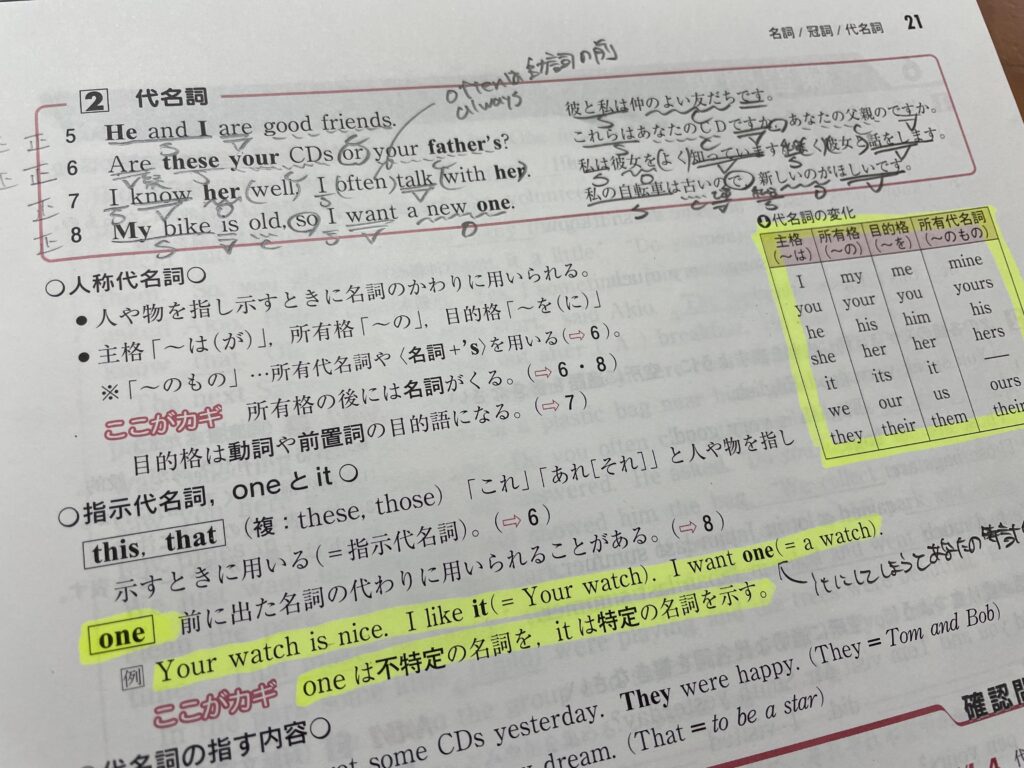 名詞/冠詞/代名詞 21
2 代名詞
often は動詞の前
always
正 5 He and I are good friends. 彼と私は仲のよい友だちです。
正 6 Are these your CDs or your father's? これらはあなたのCDですか,あなたの父親のですか。
正 7 I know her well, I often talk with her. 私は彼女をよく知っています
正 8 My bike is old, so I want a new one. 私の自転車は古いので,新しいのがほしいです。
○人称代名詞○
● 人や物を指し示すときに名詞のかわりに用いられる。
● 主格「~は(が)」,所有格「~の」,目的格「~を(に)」
※「~のもの」…所有代名詞や〈名詞+'s〉を用いる(⇨6)。
ここがカギ 所有格の後には名詞がくる。(⇨6・8)
目的格は動詞や前置詞の目的語になる。(⇨7)
代名詞の変化
主格(~は) 所有格(~の) 目的格(~を) 所有代名詞(~のもの)
I my me mine
you your you yours
he his him his
she her her hers
it its it —
we our us ours
they their them their
○指示代名詞,one と it○
this, that (複:these, those)「これ」「あれ[それ]」と人や物を指し
示すときに用いる(=指示代名詞)。(⇨6)
one 前に出た名詞の代わりに用いられることがある。(⇨8)
例 Your watch is nice. I like it(= Your watch). I want one(= a watch).
itにしてしまうとあなたの
ここがカギ one は不特定の名詞を,it は特定の名詞を示す。
代名詞の指す内容○
some CDs yesterday. They were happy. (They = Tom and Bob)
dream. (That = to be a star)
確認問